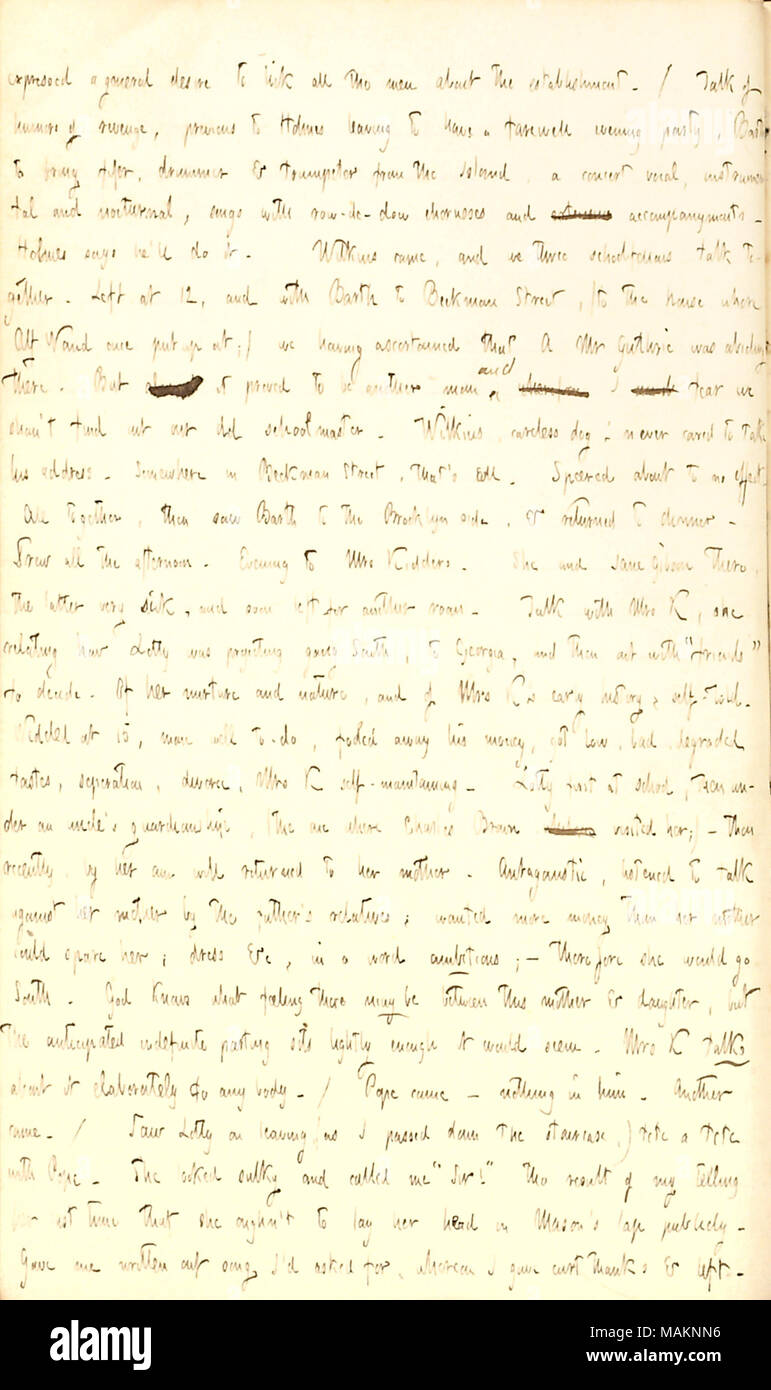 expressed a general desire to lick all the men about the establishment. / Talk of
humors of revenge, previous to Holmes leaving to have a farewell evening party, Barth
to bring fifer, drummer & trumpeter from the Island, a concert vocal, instrumen
tal and nocturnal, songs with row-de-dow chorusses and accompanyments.
Holmes says he'll do it. Wilkins came, and we three talk to-
gether. Left at 12, and with Barth to Beekman Street, (to the house where
Alf Waud once put up at;) we having ascertained that A Mr Guthrie was abiding
there. But it proved to be another man, and I fear we
shan't find out our old schoolmaster. Wilkins, careless dog! never cared to take
his address. Somewhere in Beekman Street, that's all. Speered about to no effect.
All together, then saw Barth to the Brooklyn side, & returned to dinner.
Drew all the afternoon. Evening to Mrs Kidders. She and Jane Gibson there,
the latter very sick, and soon left for another room. Talk with Mrs K, she
relating how Lotty was projecting going South, to Georgia, and then out with "friends"
to decide. Of her nurture and nature, and of Mrs Ks early history, self-told.
Wedded at 15, man well to-do, fooled away his money, got low, bad, degraded
tastes, seperation, divorce, Mrs K self-maintaining. Lotty first at school, then un-
der an uncle's guardianship, (the one where Charles Brown visited her;) - then
recently, by her own will returned to her mother. Antagonistic, listened to talk
against her mother by the father's relatives; wanted more money than her mother
could spare her; dress &c, in a word ambitious; - therefore she would go
South. God knows what feeling there may be between this mother & daughter, but
the anticipated indefinite parting sits lightly enough it would seem. Mrs K talks
about it elaborately to any body. / Pope came - nothing in him. Another
came. / Saw Lotty on leaving (as I passed down the staircase,) tete a tete
with Pope. She looked sulky and called me "Sir!" the result of my telling
her last time that she oughn't to lay her head in Mason's lap publicly.
Gave me written out song I'd asked for, whereon I gave curt thanks & left.
alamy
Image ID: MAKNN6
www.alamy.com